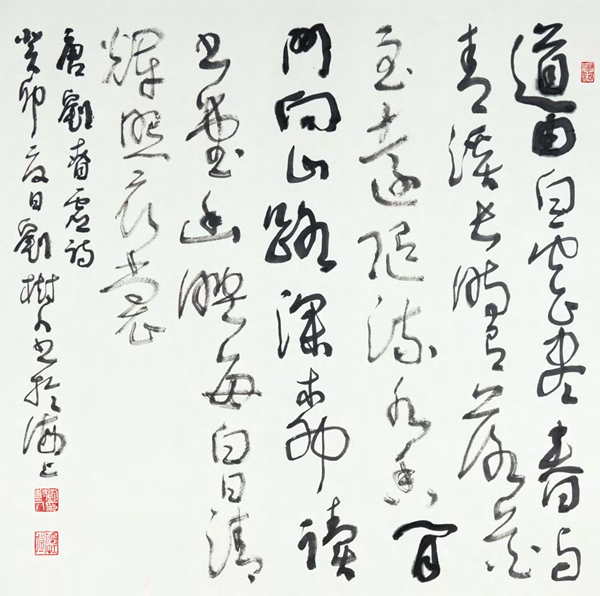 道由白雲盡春與
青溪長時有落花
至遠隨流水香閒
門向山路深柳讀
書堂幽映每白日清
輝照衣裳
唐劉昚虛詩
癸卯夏日劉樹人書於海上